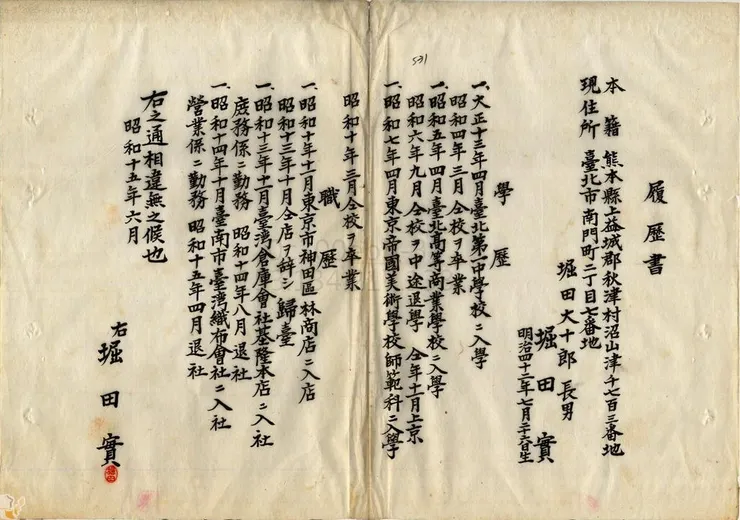 履歴書
本籍 熊本縣上益城郡秋津村沼山津千七百三番地
現住所 臺北市南門町二丁目七番地
堀田大十郎 長男
堀田實
明治四十二年七月二十六日生
學歴
一、大正十三年四月臺北第一中學校ニ入學
昭和四年三月仝校ヲ卒業
一、昭和五年四月臺北高等商業學校ニ入學
昭和六年九月仝校ヲ中途退學 仝年十一月上京
一、昭和七年四月東京帝國美術學校師範科ニ入學
昭和十年三月仝校ヲ卒業
職歴
一、昭和十年十一月東京市神田區林商店ニ入店
昭和十三年十月仝店ヲ辞シ歸臺
一、昭和十三年十一月臺湾倉庫會社基隆本店ニ入社
庶務係ニ勤務 昭和十四年八月退社
一、昭和十四年十月臺南市臺湾織布會社ニ入社
營業係ニ勤務 昭和十五年四月退社
右之通相違無之候也
昭和十五年六月
右 堀田實